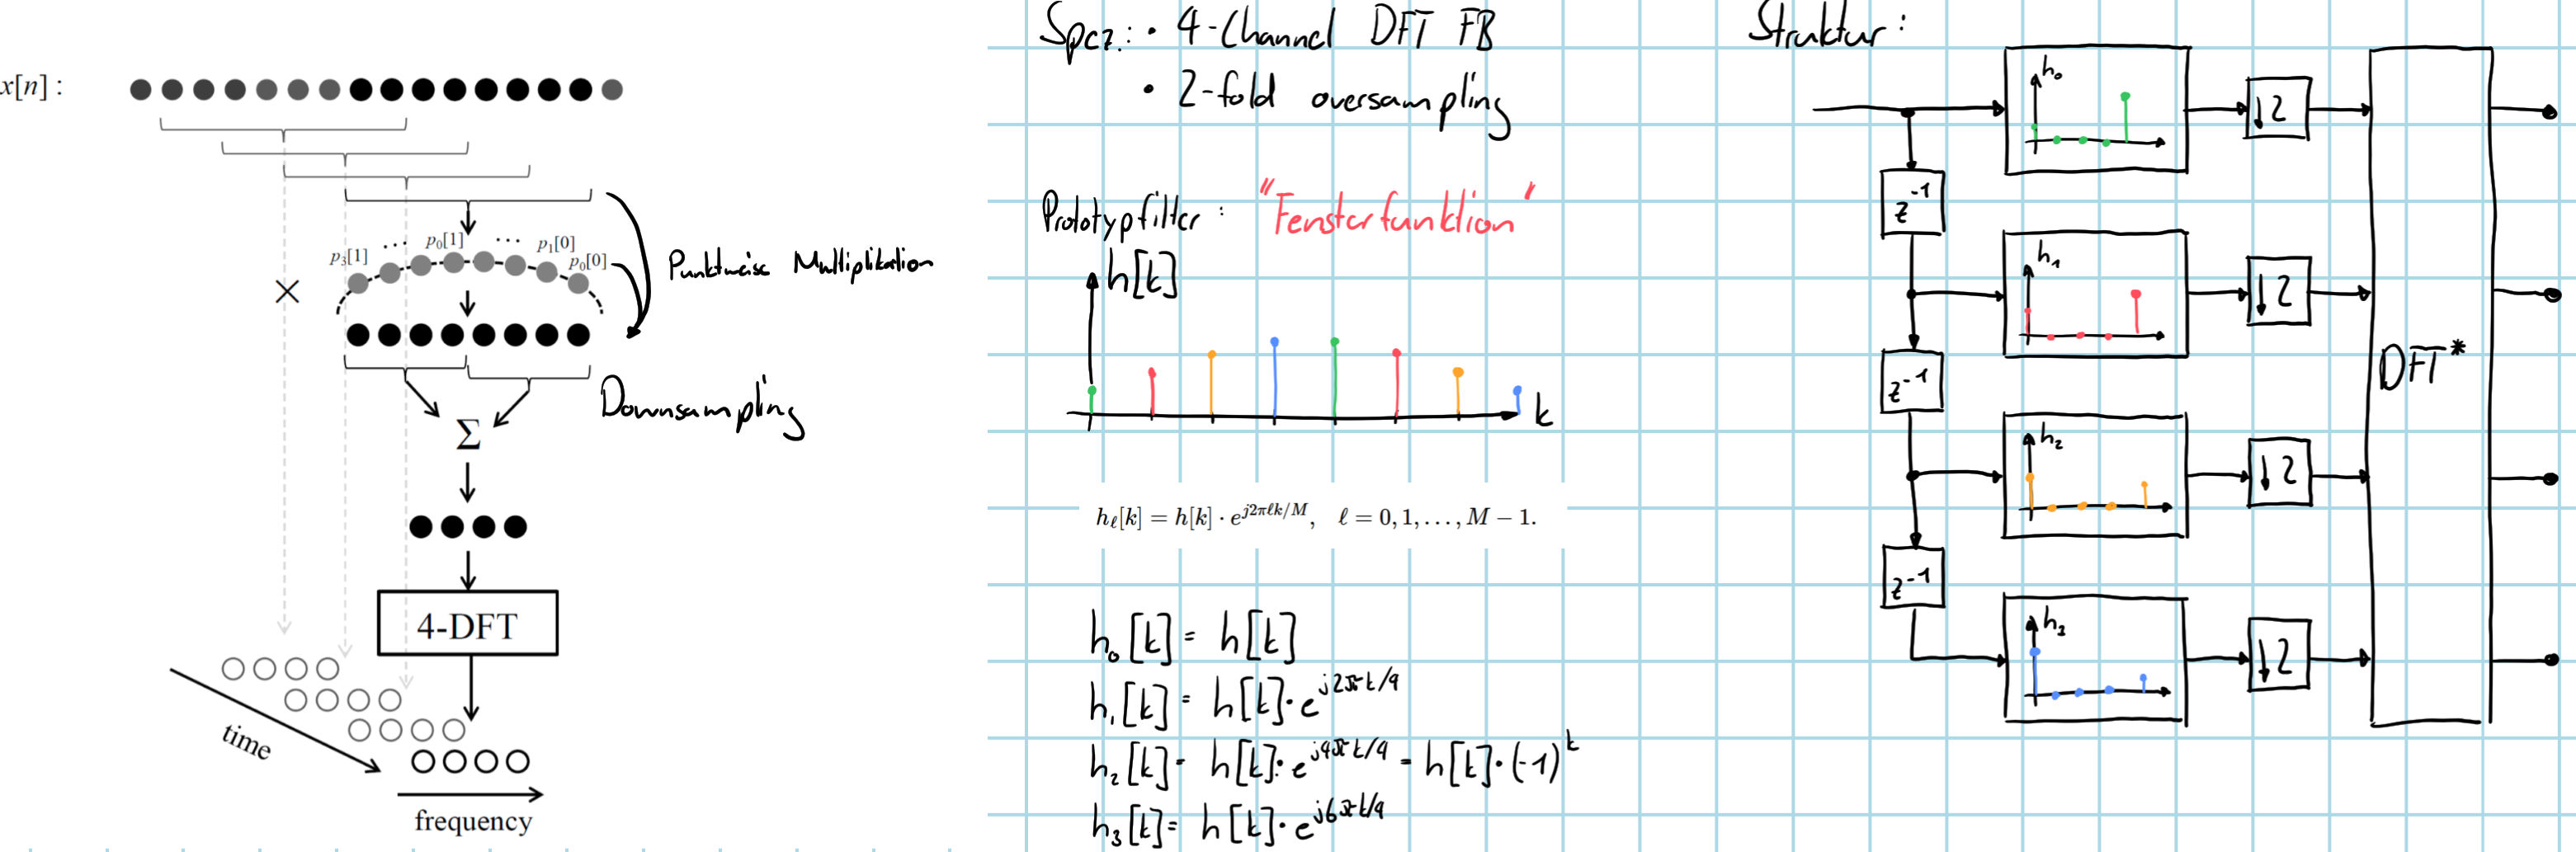 x[n] :
p₃[1] ... p₀[1] ... p₁[0] p₀[0]
×
Punktweise Multiplikation
Downsampling
Σ
4-DFT
time
frequency
Spez.: • 4-Channel DFT FB
• 2-fold oversampling
Prototypfilter : "Fensterfunktion"
h[k]
k
hℓ[k] = h[k] · e^{j2πℓk/M}, ℓ = 0, 1, . . . , M − 1.
h₀[k] = h[k]
h₁[k] = h[k] · e^{j2πk/4}
h₂[k] = h[k] · e^{j4πk/4} = h[k] · (-1)^k
h₃[k] = h[k] · e^{j6πk/4}
Struktur :
h₀
↓2
z⁻¹
h₁
↓2
z⁻¹
DFT*
h₂
↓2
z⁻¹
h₃
↓2